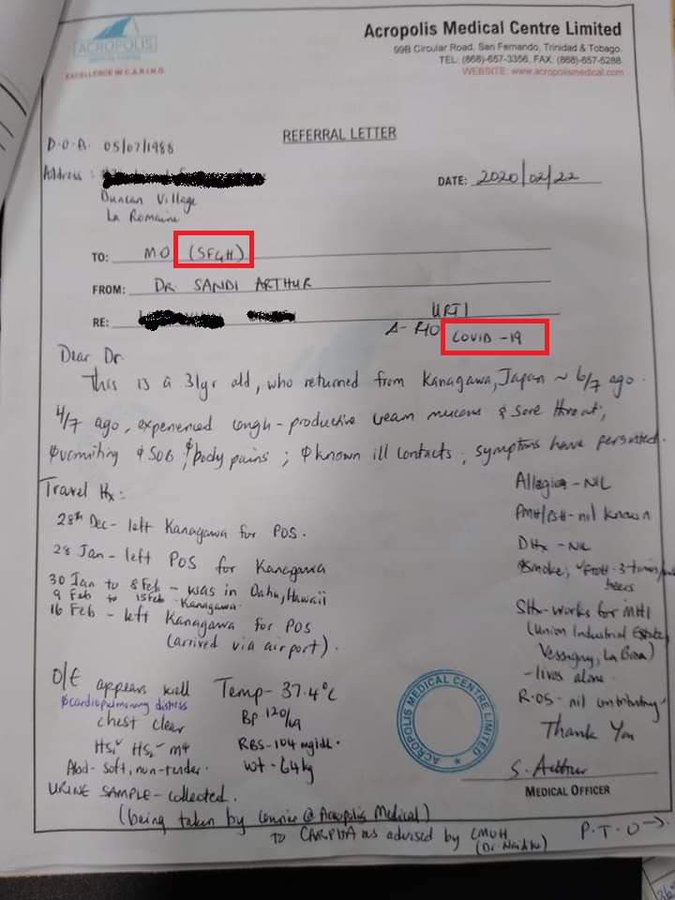 ACROPOLIS
MEDICAL CENTRE
EXCELLENCE IN C.A.R.I.N.G
Acropolis Medical Centre Limited
99B Circular Road, San Fernando, Trinidad & Tobago.
TEL: (868)-657-3356, FAX: (868)-657-6288
WEBSITE: www.acropolismedical.com
REFERRAL LETTER
05/07/1988
Address :
Duncan Village
La Romaine
DATE: 2020/02/22
TO: MO (SFGH)
FROM: DR SANDI ARTHUR
RE:
URTI
COVID-19
Dear Dr.
This is a 31yr old, who returned from Kanagawa, Japan ~ 6/7 ago.
4/7 ago, experienced cough - productive cream mucous & sore throat,
vomiting SOB, body pains ; known ill contacts ; symptoms have persisted.
Travel Hx:
28th Dec - left Kanagawa for POS.
28 Jan - left POS for Kanagawa
30 Jan to 8 Feb - was in Oahu, Hawaii
9 Feb to 15 Feb - Kanagawa
16 Feb - left Kanagawa for POS
(arrived via airport).
Allergies - NIL
PMH/PSH - nil known
DHx - NIL
smoke; EtOH - 3 times/
beers
SHx - works for MHI
(Union Industrial Estate,
Vessigny, La Brea)
- lives alone.
R.OS - nil contributing
Thank You
O/E appears well Temp - 37.4°C
cardiopulmonary distress
chest clear BP 120/
HS₁ HS₂ RBS - 104 mg/dl.
Abd - soft, non-tender. wt - 64kg
URINE SAMPLE - collected.
(being taken by @ Acropolis Medical)
TO CARPHA as advised by CMOH
ACROPOLIS MEDICAL CENTRE LIMITED
S. Arthur
MEDICAL OFFICER
P.T.O →